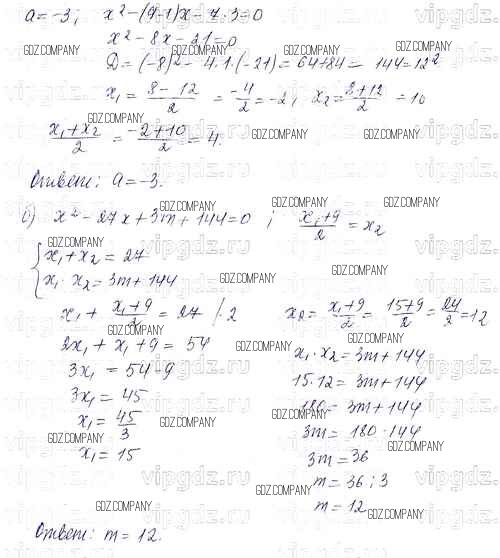 a = -3; x² - (9-1)x - 7·3 = 0
x² - 8x - 21 = 0
D = (-8)² - 4·1·(-21) = 64+84 = 144 = 12²
x₁ = (8-12)/2 = -4/2 = -2; x₂ = (8+12)/2 = 10
(x₁+x₂)/2 = (-2+10)/2 = 4.
Ответ: a = -3.
x² - 27x + 3m + 144 = 0; (x₁+9)/2 = x₂
{ x₁ + x₂ = 27
x₁ · x₂ = 3m + 144
x₁ + (x₁+9)/2 = 27 |·2
2x₁ + x₁ + 9 = 54
3x₁ = 54 - 9
3x₁ = 45
x₁ = 45/3
x₁ = 15
x₂ = (x₁+9)/2 = (15+9)/2 = 24/2 = 12
x₁ · x₂ = 3m + 144
15·12 = 3m + 144
180 = 3m + 144
3m = 180 - 144
3m = 36
m = 36 : 3
m = 12
Ответ: m = 12.
GDZ.COMPANY
vipgdz.ru